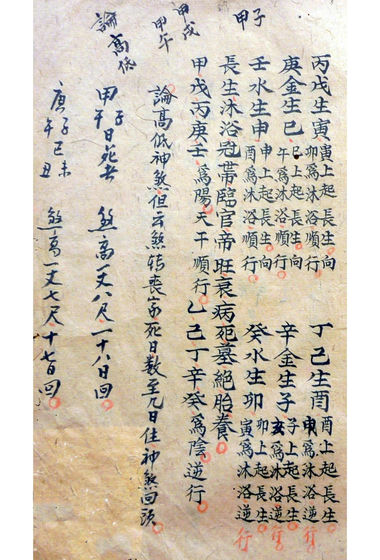 甲子
丙戊生寅 寅上起長生向 卯為沐浴順行 丁己生酉 酉上起長生 申為沐浴逆行
庚金生巳 巳上起長生向 午為沐浴順行 辛金生子 子上起長生 亥為沐浴逆行
壬水生申 申上起長生向 酉為沐浴順行 癸水生卯 卯上起長生 寅為沐浴逆行
長生沐浴冠帶臨官帝旺衰病死墓絕胎養
甲戌丙庚壬為陽天干順行乙己丁辛癸為陰逆行
甲戌
甲午
論高低神煞但云煞转喪家死日数至九日住神煞回頭
論高低
甲子午日死者 煞高一丈八尺一十八日回
庚子午己未丑 煞高一丈七尺十七日回